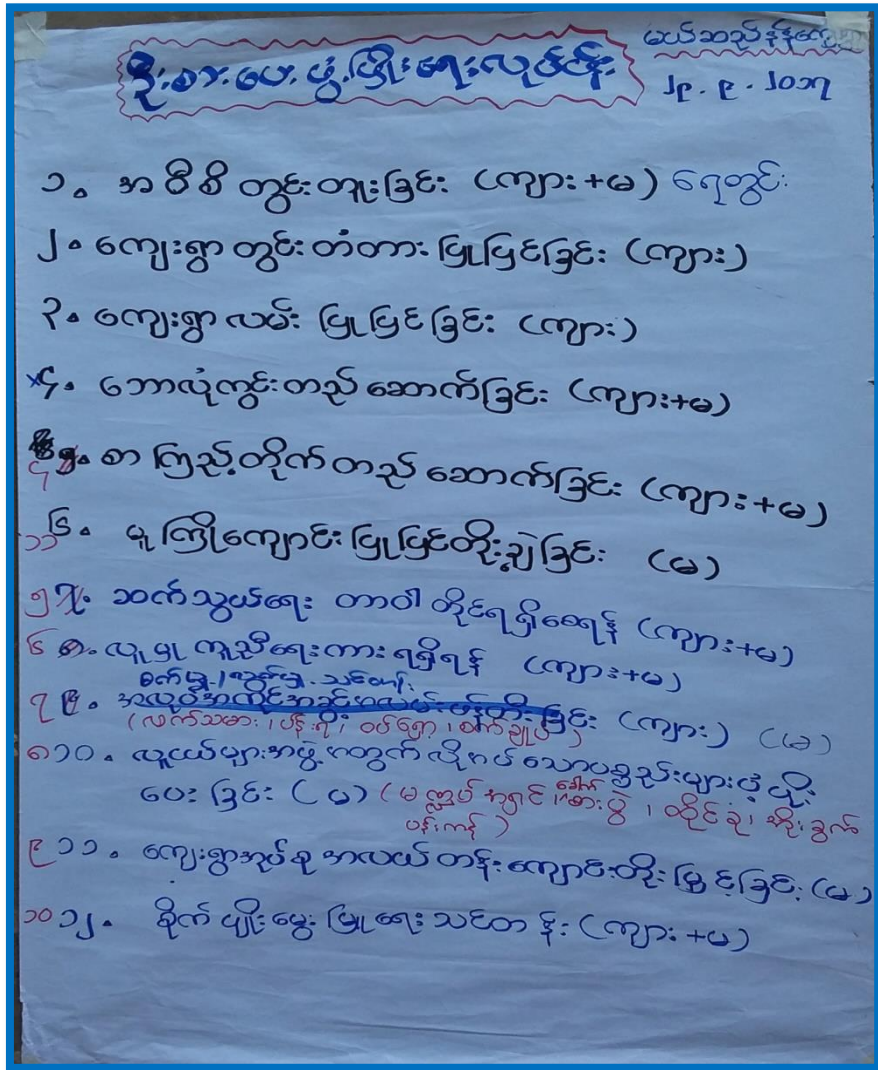 ဦးစားပေး ဖွံ့ဖြိုးရေးလုပ်ငန်း
၂၉.၉.၂၀၁၇
၁။ အဝီစိ တွင်းတူးခြင်း (ကျား+မ) ရေတွင်း
၂။ ကျေးရွာ တွင်း တံတား ပြုပြင်ခြင်း (ကျား)
၃။ ကျေးရွာ လမ်း ပြုပြင်ခြင်း (ကျား)
x၄။ ဘောလုံးကွင်း တည်ဆောက်ခြင်း (ကျား+မ)
၄ ၅။ စာကြည့်တိုက် တည်ဆောက်ခြင်း (ကျား+မ)
၁၁ ၆။ မူကြိုကျောင်း ပြုပြင်တိုးချဲ့ခြင်း (မ)
၅ ၇။ ဆက်သွယ်ရေး တာဝါတိုင်ရရှိစေရန် (ကျား+မ)
၆ ၈။ လူမှု ကူညီရေးကား ရရှိရန် (ကျား+မ)
စက်မှု၊ လက်မှု သင်တန်း
၇ ၉။ အလုပ်အကိုင်အခွင့်အလမ်း ဖန်တီးခြင်း (ကျား) (မ)
(လက်သမား၊ ပန်းရံ၊ ဝပ်ရှော၊ စက်ချုပ်)
၈ ၁၀။ လူငယ်များအဖွဲ့အတွက် လိုအပ်သောပစ္စည်းများပံ့ပိုး
ပေးခြင်း (မ) (မဏ္ဍပ် အရှင် ခေါက် စားပွဲ၊ ထိုင်ခုံ၊ အိုး ခွက်
ပန်းကန်)
၉ ၁၁။ ကျေးရွာအုပ်စု အလယ်တန်းကျောင်းတိုးမြှင့်ခြင်း (မ)
၁၀ ၁၂။ စိုက်ပျိုးမွေးမြူရေး သင်တန်း (ကျား+မ)